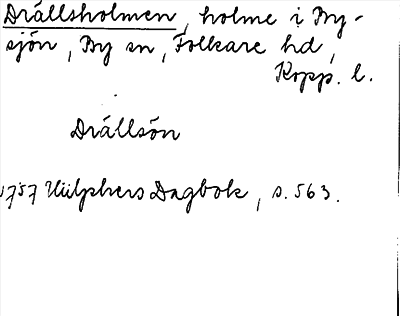 Drällsholmen, holme i By-
sjön, By sn, Folkare hd,
Kopp. l.
Drällsön
1757 Hülphers Dagbok, s. 563.